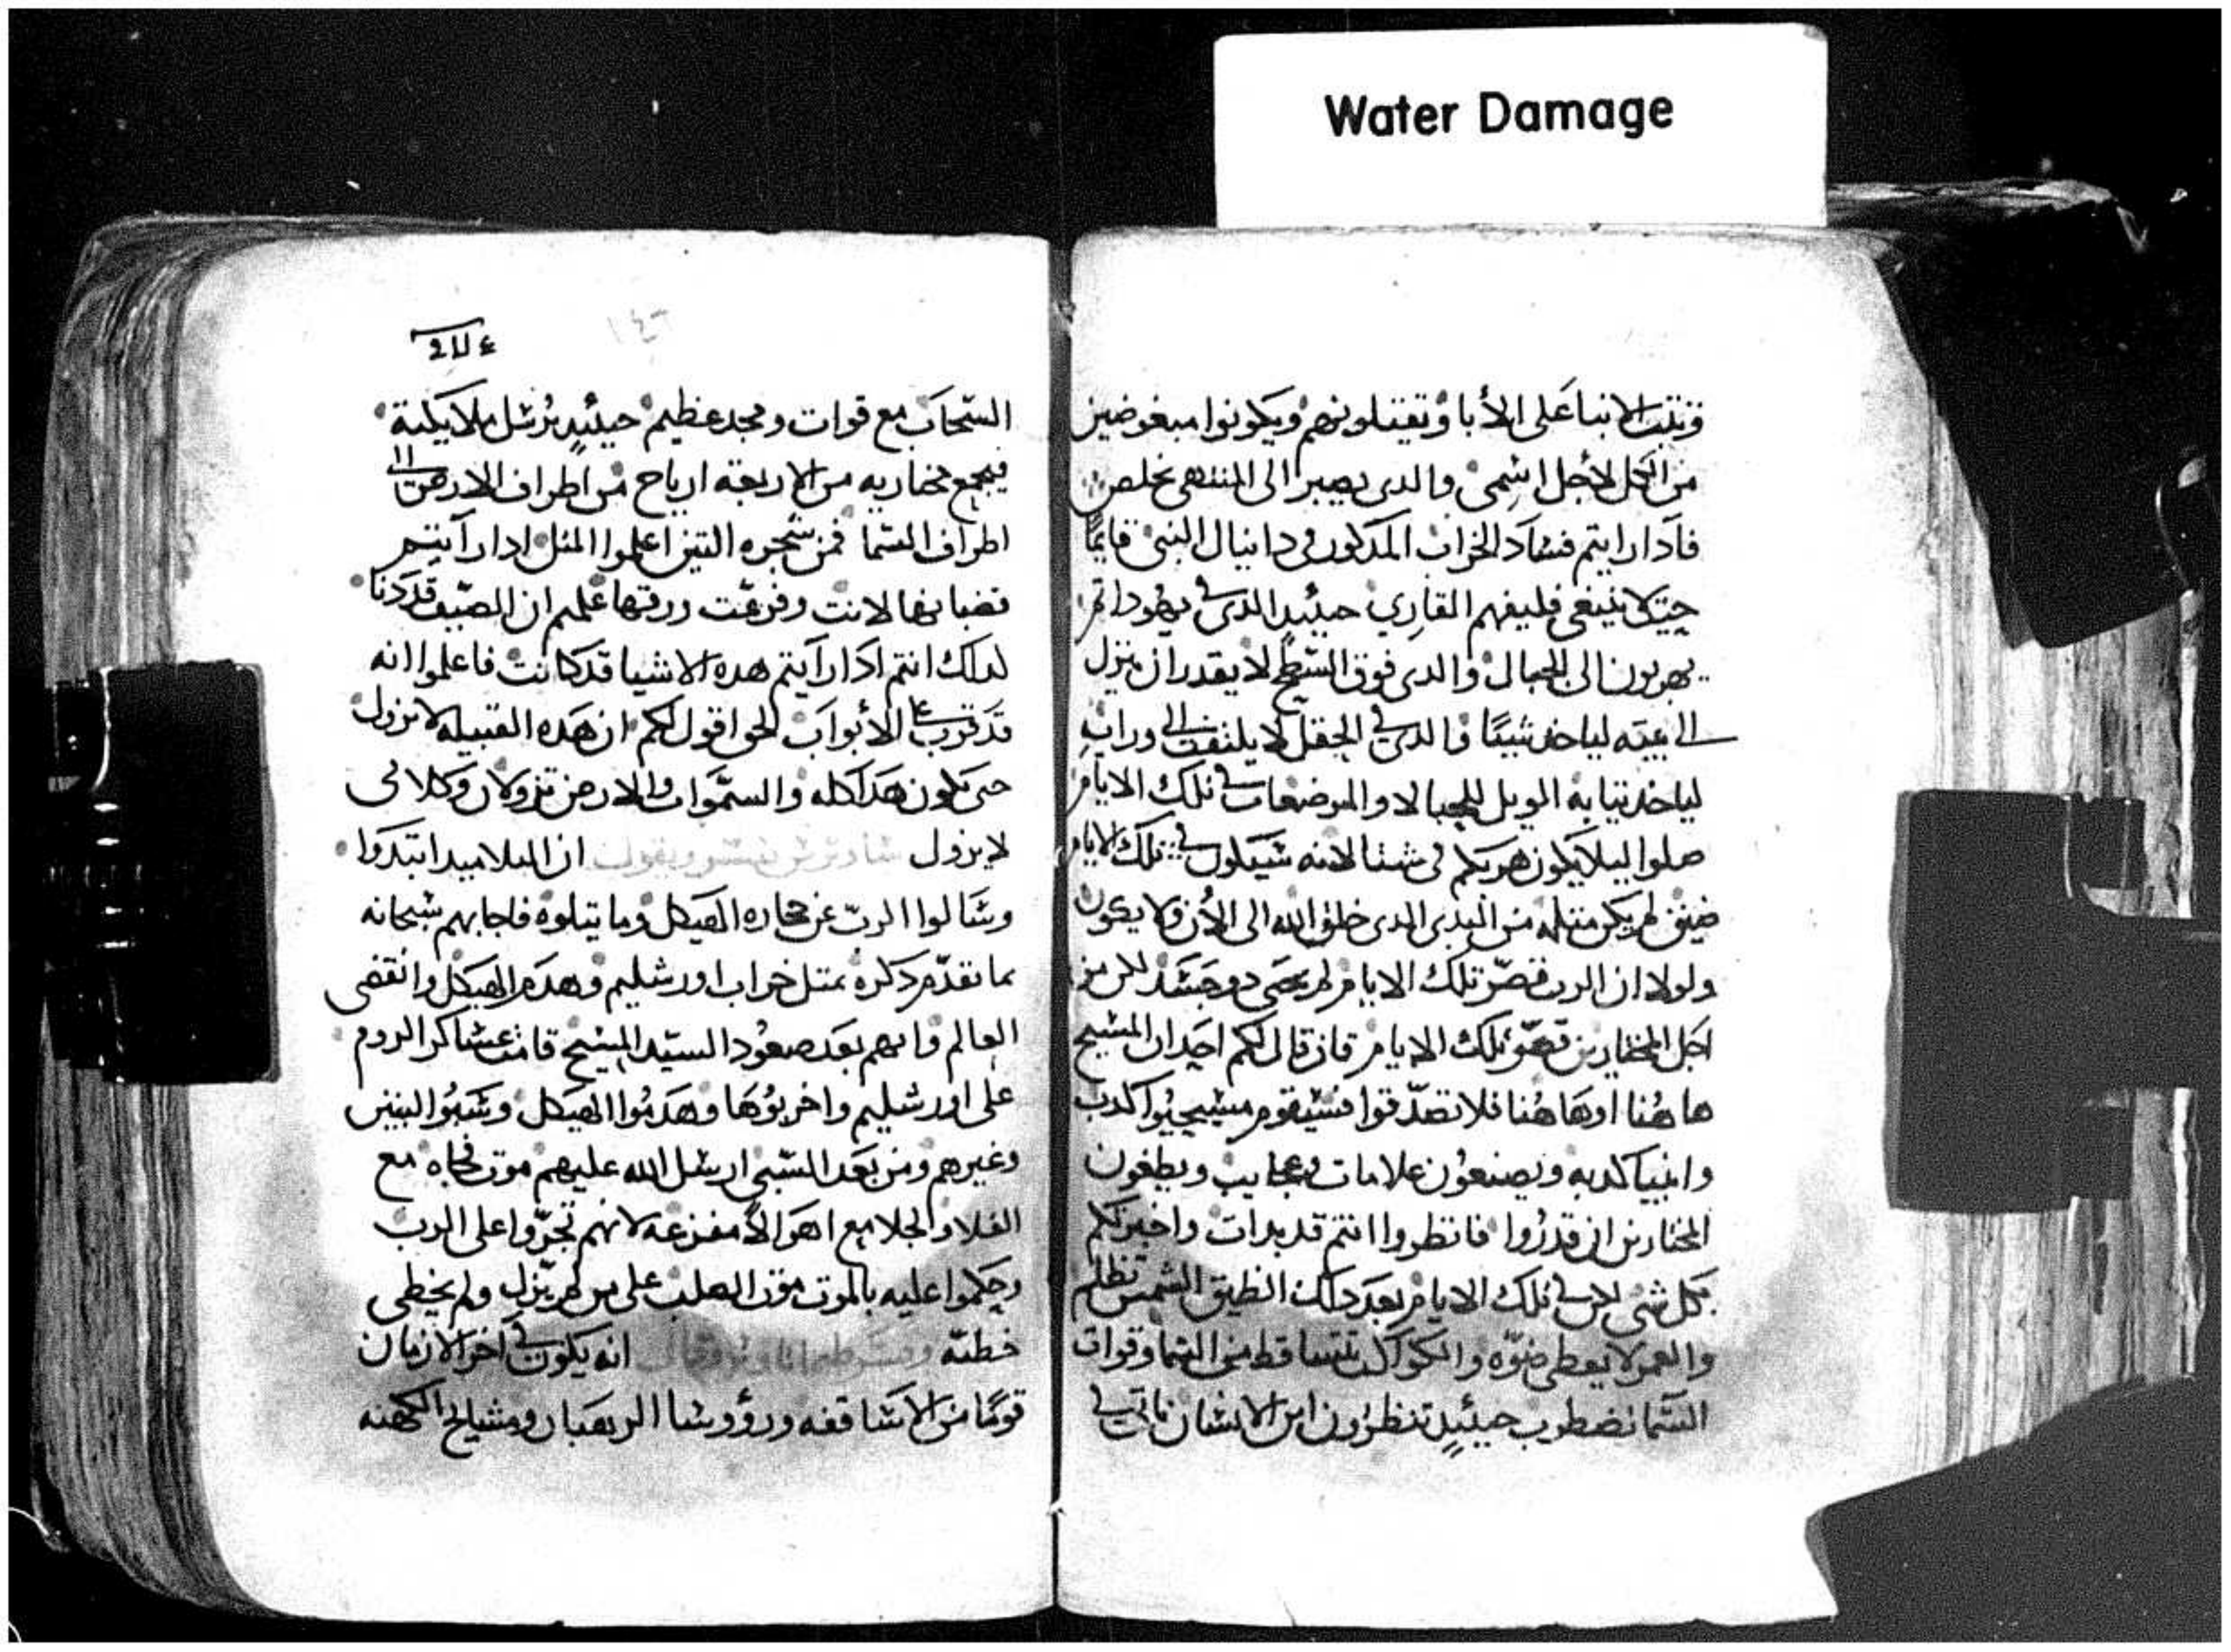 Water Damage
وتثب الابنا على الأبا وتقتلونهم ويكونوا مبغوضين
من الكل لأجل اسمي والدى يصبر الى المنتهى يخلص
فادا رايتم فساد الخراب المدكور فى دانيال النبى قايمًا
حيت لا ينبغى فليفهم القاري حينيدٍ الدى فى يهودا
يهربون الى الجبال والدى فوق السطح لا يقدر ان ينزل
الى بيته لياخد شيئًا والدى فى الحقل لا يلتفت الى ورايه
لياخد تيابه الويل للحبالا والمرضعات فى تلك الايام
صلوا ليلا يكون هربكم فى شتا لانه سيكون فى تلك الايام
ضيق لم يكن متله من البدى الدى خلق الله الى الأن ولا يكون
ولولا ان الرب قصّر تلك الايام لم يحيى دو جسد لكن من
اجل المختارين قصر تلك الايام فان قال لكم احد ان المسيح
هاهُنا اوهاهُنا فلا تصدّقوا فسيقوم مسيحيُوا كدب
وانبيا كدبه ويصنعون علامات وعجايب ويطغون
المختارين ان قدرُوا فانظروا انتم قد بدات واخبرتكم
بكل شى لكن فى تلك الايام بعد دلك الضيق الشمس تظلم
والقمر لا يعطى ضوّه والكواكب تتساقط من السما وقوات
السّما تضطرب حينيدٍ تنظرون ابن الانسان ياتى فى
السّحاب مع قوات ومجد عظيم حينيدٍ يرُسل ملايكته
فيجمع مختاريه من الاربعه ارياح من اطراف الارض الى
اطراف السّما فمن شجره التين اعلموا المتل ادا رآيتم
قضبانها لانت وفرعت ورقتها علمتم ان الصّيف قد دنا
لدلك انتم ادا رآيتم هده الاشيا قد كانت فاعلموا انه
قد قرب على الأبواب الحق اقول لكم ان هده القبيله لا تزول
حتى يكون هدا كله والسّموات والارض تزولان وكلامى
لا يزول ان التلاميد ابتدوا
وسَالوا الربّ عن حجاره الهيكل وما يتلوه فاجابهم سبحانه
بما تقدّم دكره بمتل خراب اورشليم وهدم الهيكل وانقضى
العالم وانهم بعد صعُود السيّد المسيح قامت عساكر الروم
على اورشليم واخربُوها وهدمُوا الهيكل وسَبُوا البنين
وغيرهم ومن بَعد السّبى ارسل الله عليهم موت فجاه مع
الغلا والجلا مع اهوالاً مفزعه لانهم تجرّوا على الرب
وحكموا عليه بالموت موت الصلب على من لم يزل ولم يخطى
خطيّه انه يكون فى آخر الازمان
قومًا من الاساقفه ورؤوسا الرهبان ومشايخ الكهنه